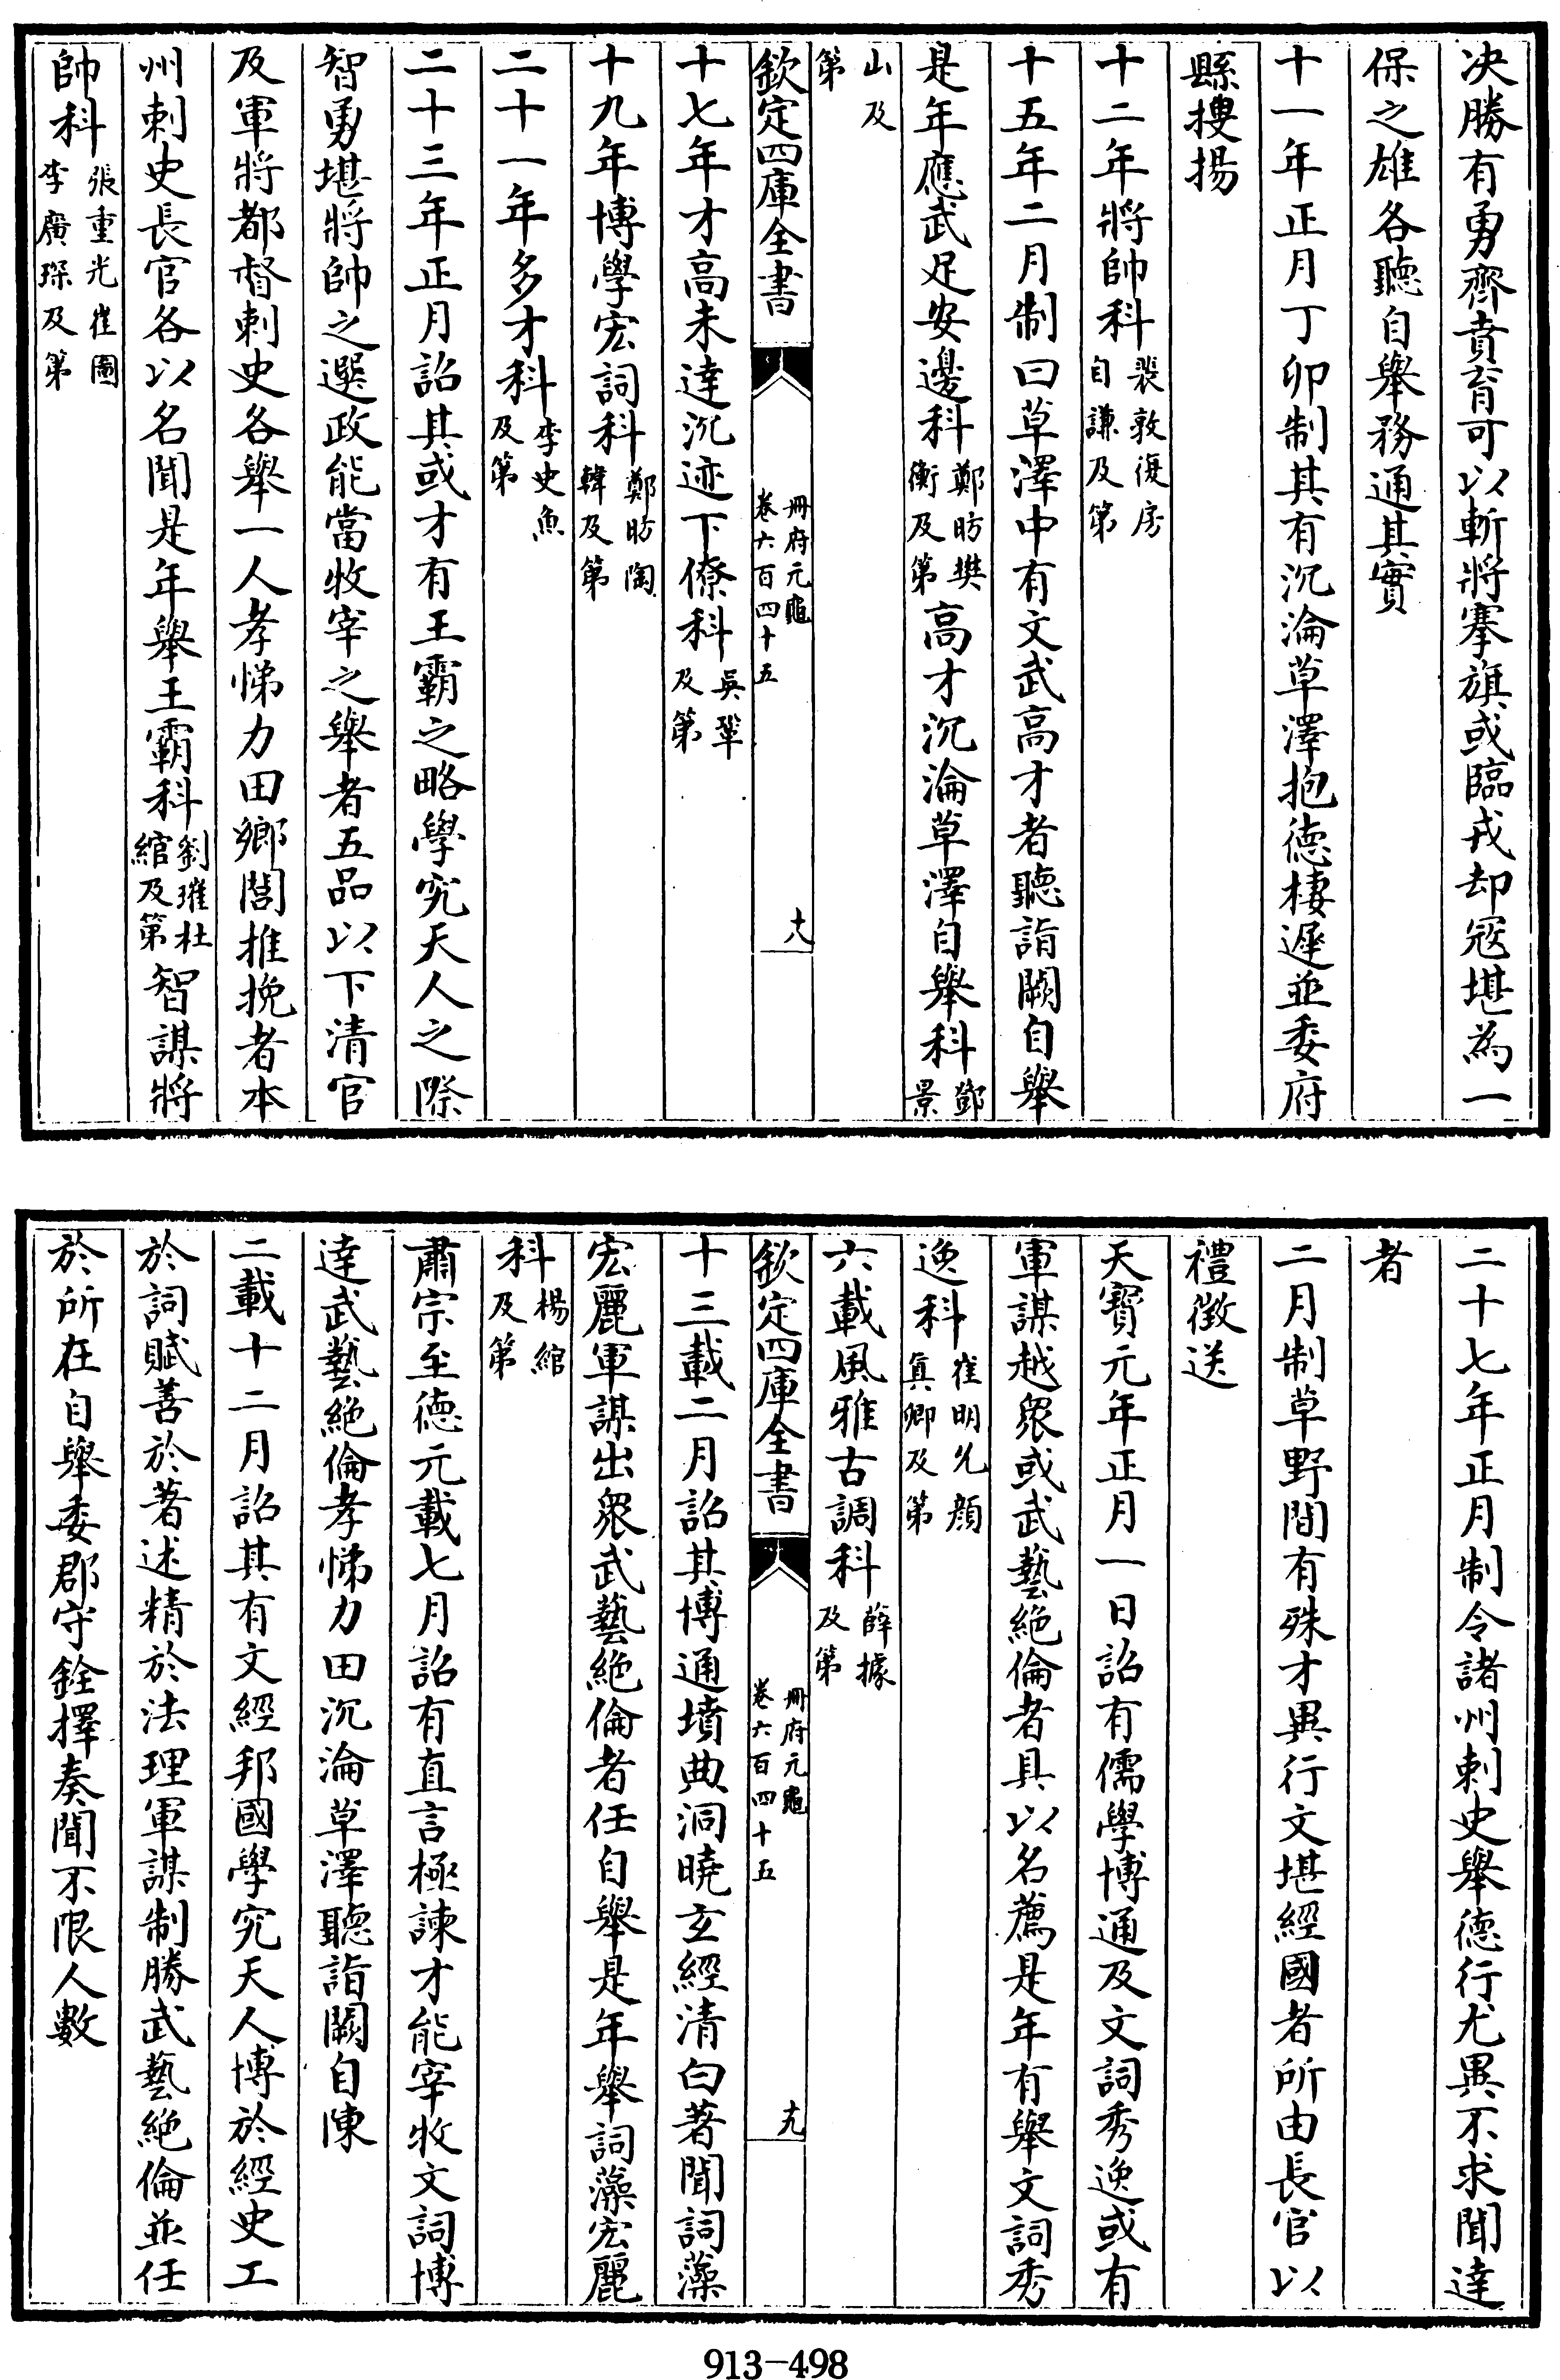 决勝有勇齊賁育可以斬將搴旗或臨戎却冦堪為一
保之雄各聽自舉務通其實
十一年正月丁卯制其有沉淪草澤抱德棲遲並委府
縣搜揚
十二年將帥科裴敦復房自謙及第
十五年二月制曰草澤中有文武高才者聽詣闕自舉
是年應武足安邊科鄭昉樊衡及第高才沉淪草澤自舉科鄧景
山及第
欽定四庫全書 冊府元龜卷六百四十五 十八
十七年才高未達沉迹下僚科吳鞏及第
十九年博學宏詞科鄭昉陶韓及第
二十一年多才科李史魚及第
二十三年正月詔其或才有王霸之略學究天人之際
智勇堪將帥之選政能當牧宰之舉者五品以下清官
及軍將都督刺史各舉一人孝悌力田鄉閭推挽者本
州刺史長官各以名聞是年舉王霸科劉璀杜綰及第智謀將
帥科張重光崔圖李廣琛及第
二十七年正月制令諸州刺史舉德行尤異不求聞達
者
二月制草野間有殊才異行文堪經國者所由長官以
禮徵送
天寶元年正月一日詔有儒學博通及文詞秀逸或有
軍謀越衆或武藝絕倫者具以名薦是年有舉文詞秀
逸科崔明允顔真卿及第
六載風雅古調科薛據及第
欽定四庫全書 冊府元龜卷六百四十五 十九
十三載二月詔其博通墳典洞曉玄經清白著聞詞藻
宏麗軍謀出衆武藝絕倫者任自舉是年舉詞藻宏麗
科楊綰及第
肅宗至德元載七月詔有直言極諫才能宰牧文詞博
達武藝絕倫孝悌力田沉淪草澤聽詣闕自陳
二載十二月詔其有文經邦國學究天人博於經史工
於詞賦善於著述精於法理軍謀制勝武藝絕倫並任
於所在自舉委郡守銓擇奏聞不限人數
913-498